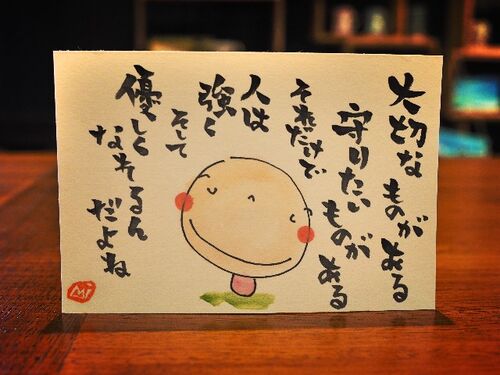 大切な
ものが
ある
守りたい
ものが
ある
それだけで
人は
強く
そして
優しく
なれるん
だよね